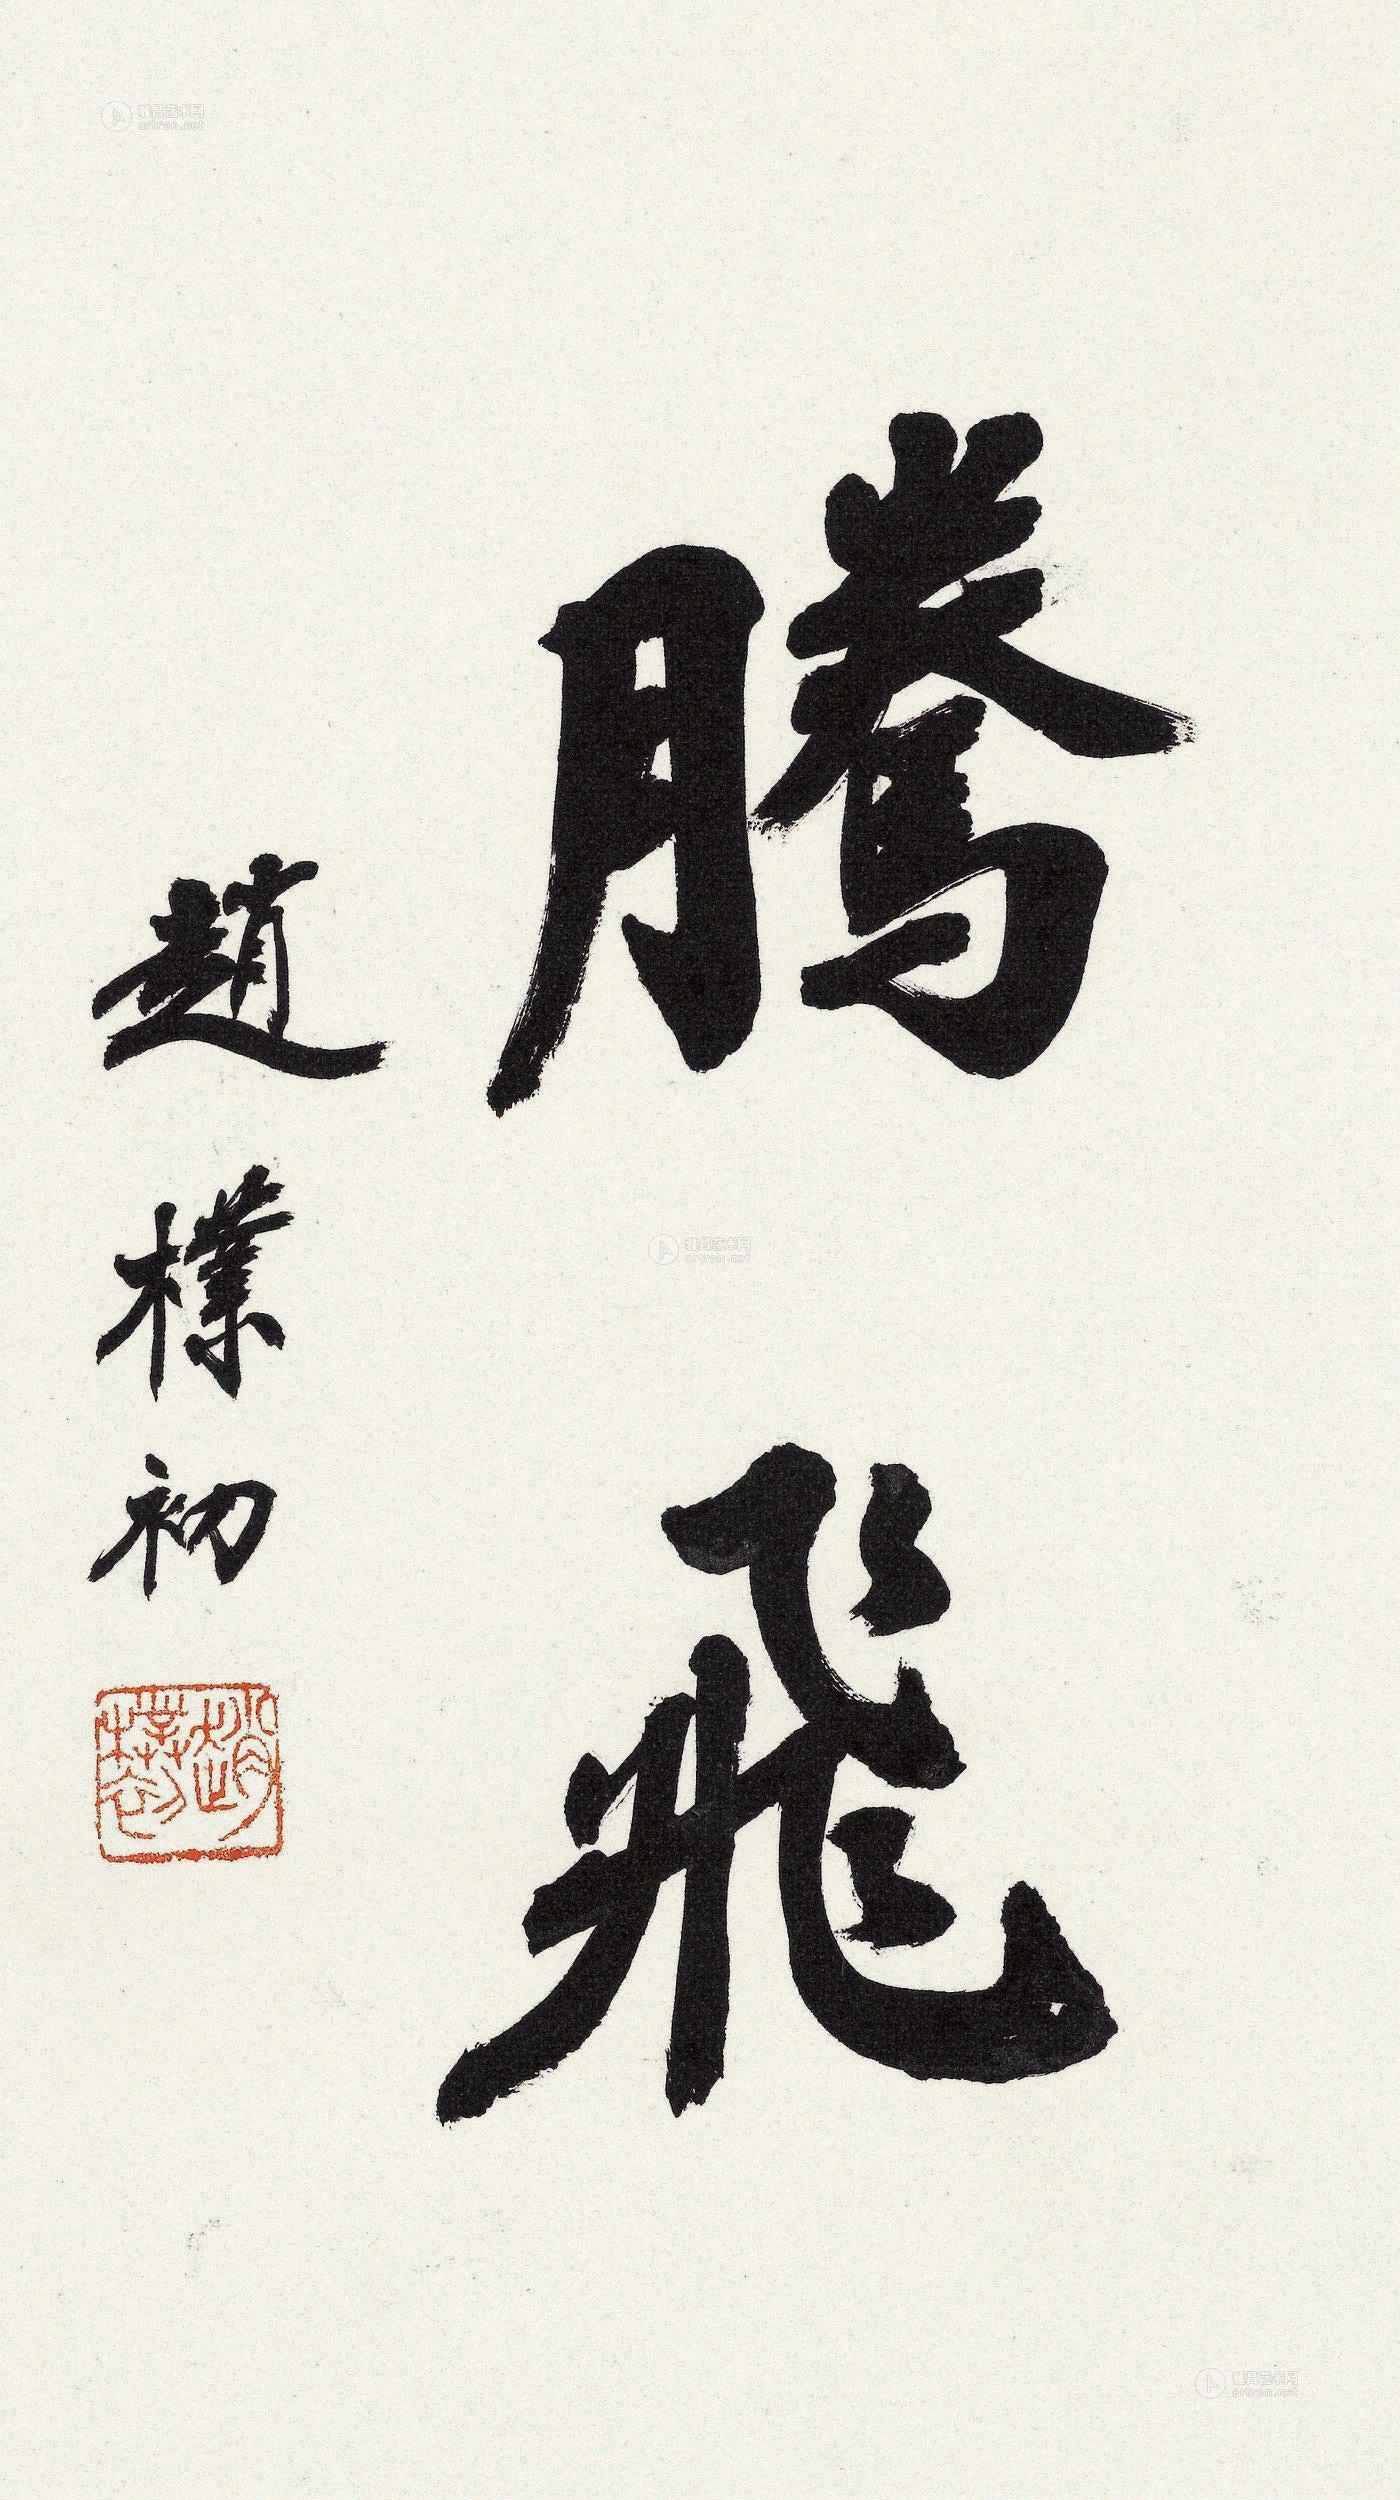 騰飛
趙樸初
趙樸初
雅昌艺术网
artron.net
雅昌艺术网
artron.net
雅昌艺术网
artron.net